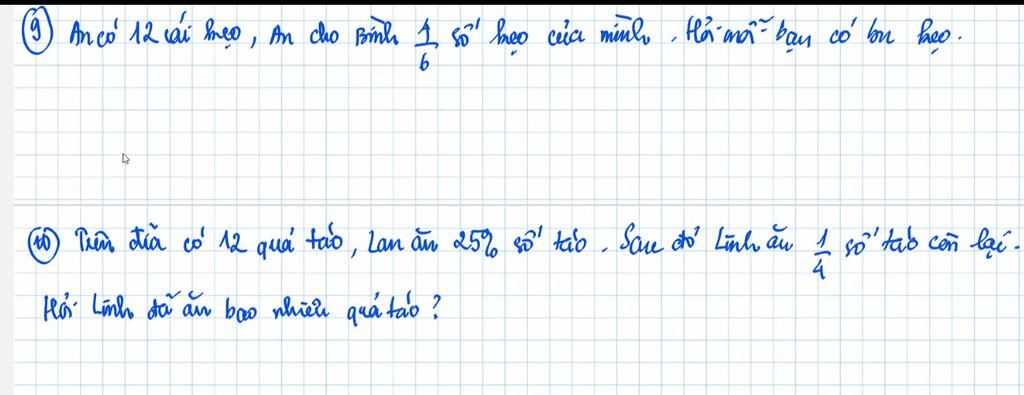 9 An có 12 cái kẹo, An cho Bình 1/6 số kẹo của mình. Hỏi mỗi bạn có bn kẹo.
10 Trên đĩa có 12 quả táo, Lan ăn 25% số táo. Sau đó Linh ăn 1/4 số táo còn lại.
Hỏi Linh đã ăn bao nhiêu quả táo?